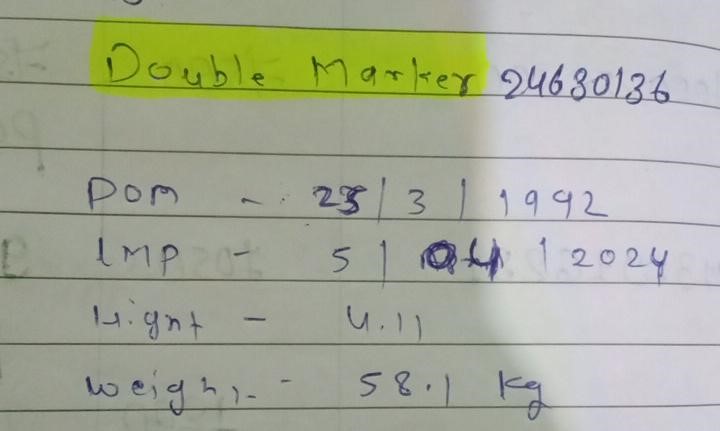 Double Marker 24630136
DOM - 25/3/1992
LMP - 5/04/2024
Hight - 4.11
Weight - 58.1 Kg